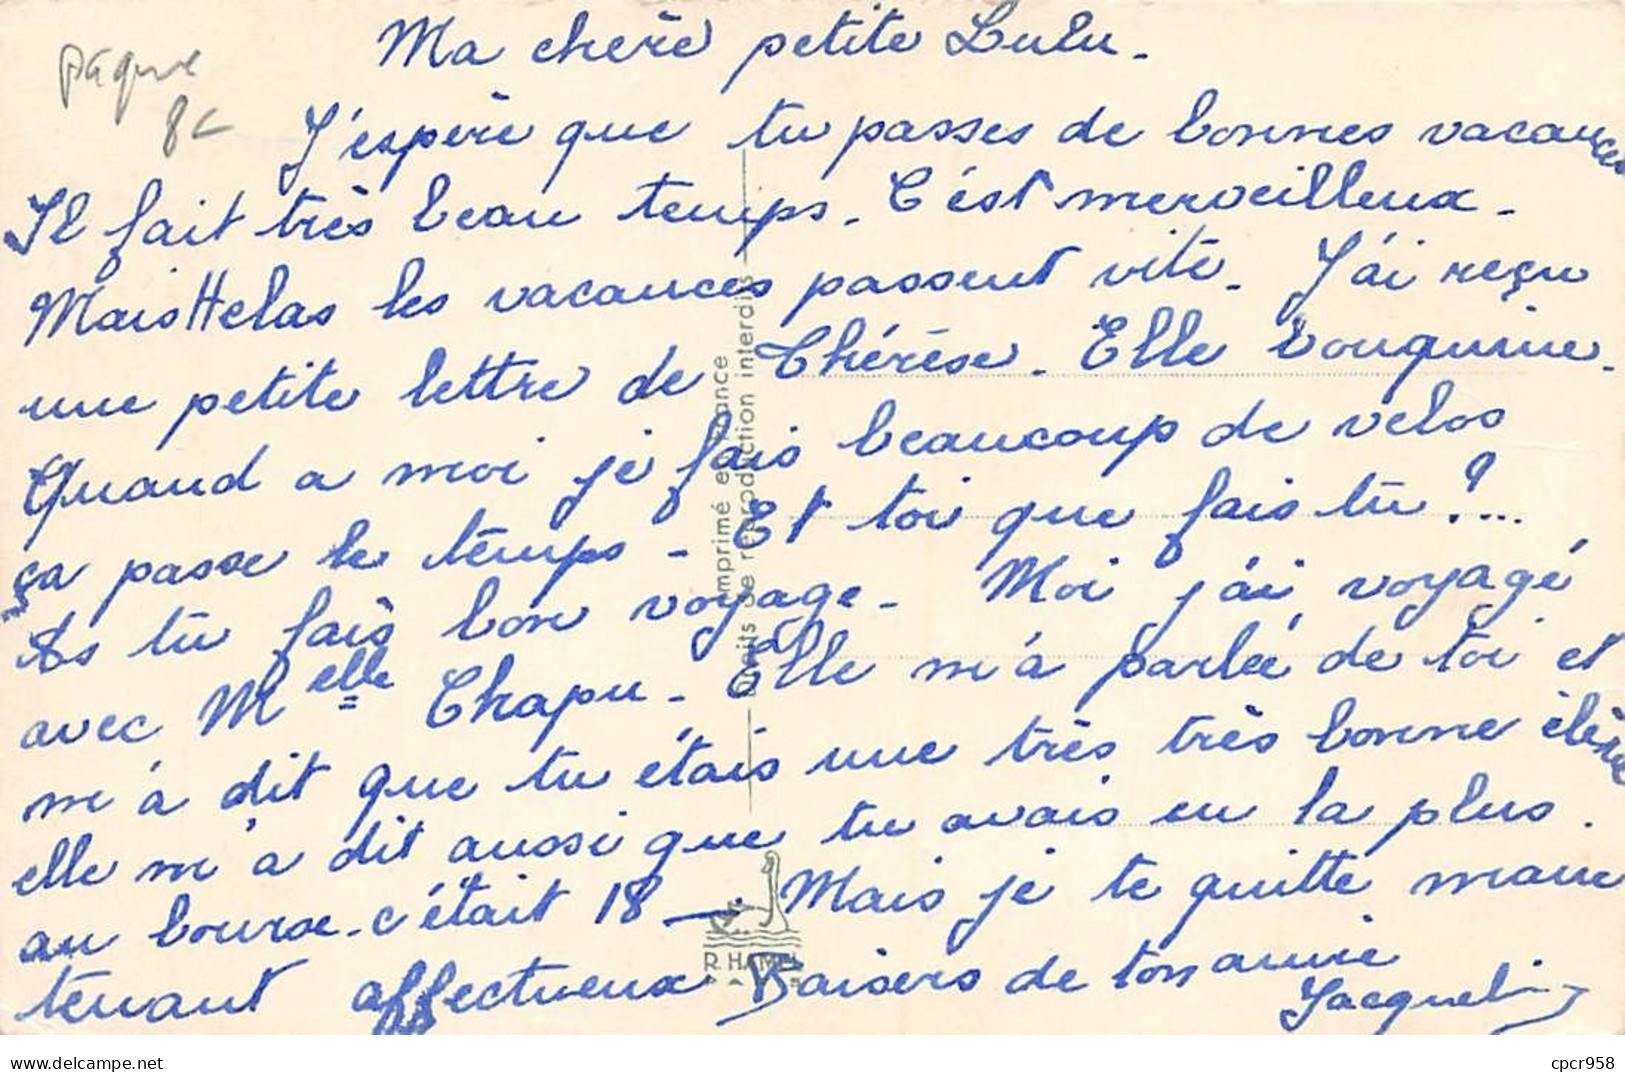 Pâque
8c
Ma chère petite Lulu.
J'espère que tu passes de bonnes vacances
Il fait très beau temps. C'ést merveilleux.
Mais Helas les vacances passent vite. J'ai reçu
une petite lettre de Thérèse. Elle bouquine.
Quand a moi je fais beaucoup de velos
ça passe le temps. Et toi que fais tu ?...
As tu fais bon voyage. Moi j'ai voyagé
avec Melle Chapu. Elle m'a parleé de toi et
m'a dit que tu étais une très très bonne élève
elle m'a dit aussi que tu avais eu la plus
au bourse. c'était 18 —. Mais je te quitte mane
tenant affectueux Baisers de ton amie
Jacqueline
Imprimé en France
Droits de reproduction interdits
R. HAMEL
delcampe.net
cpcr958